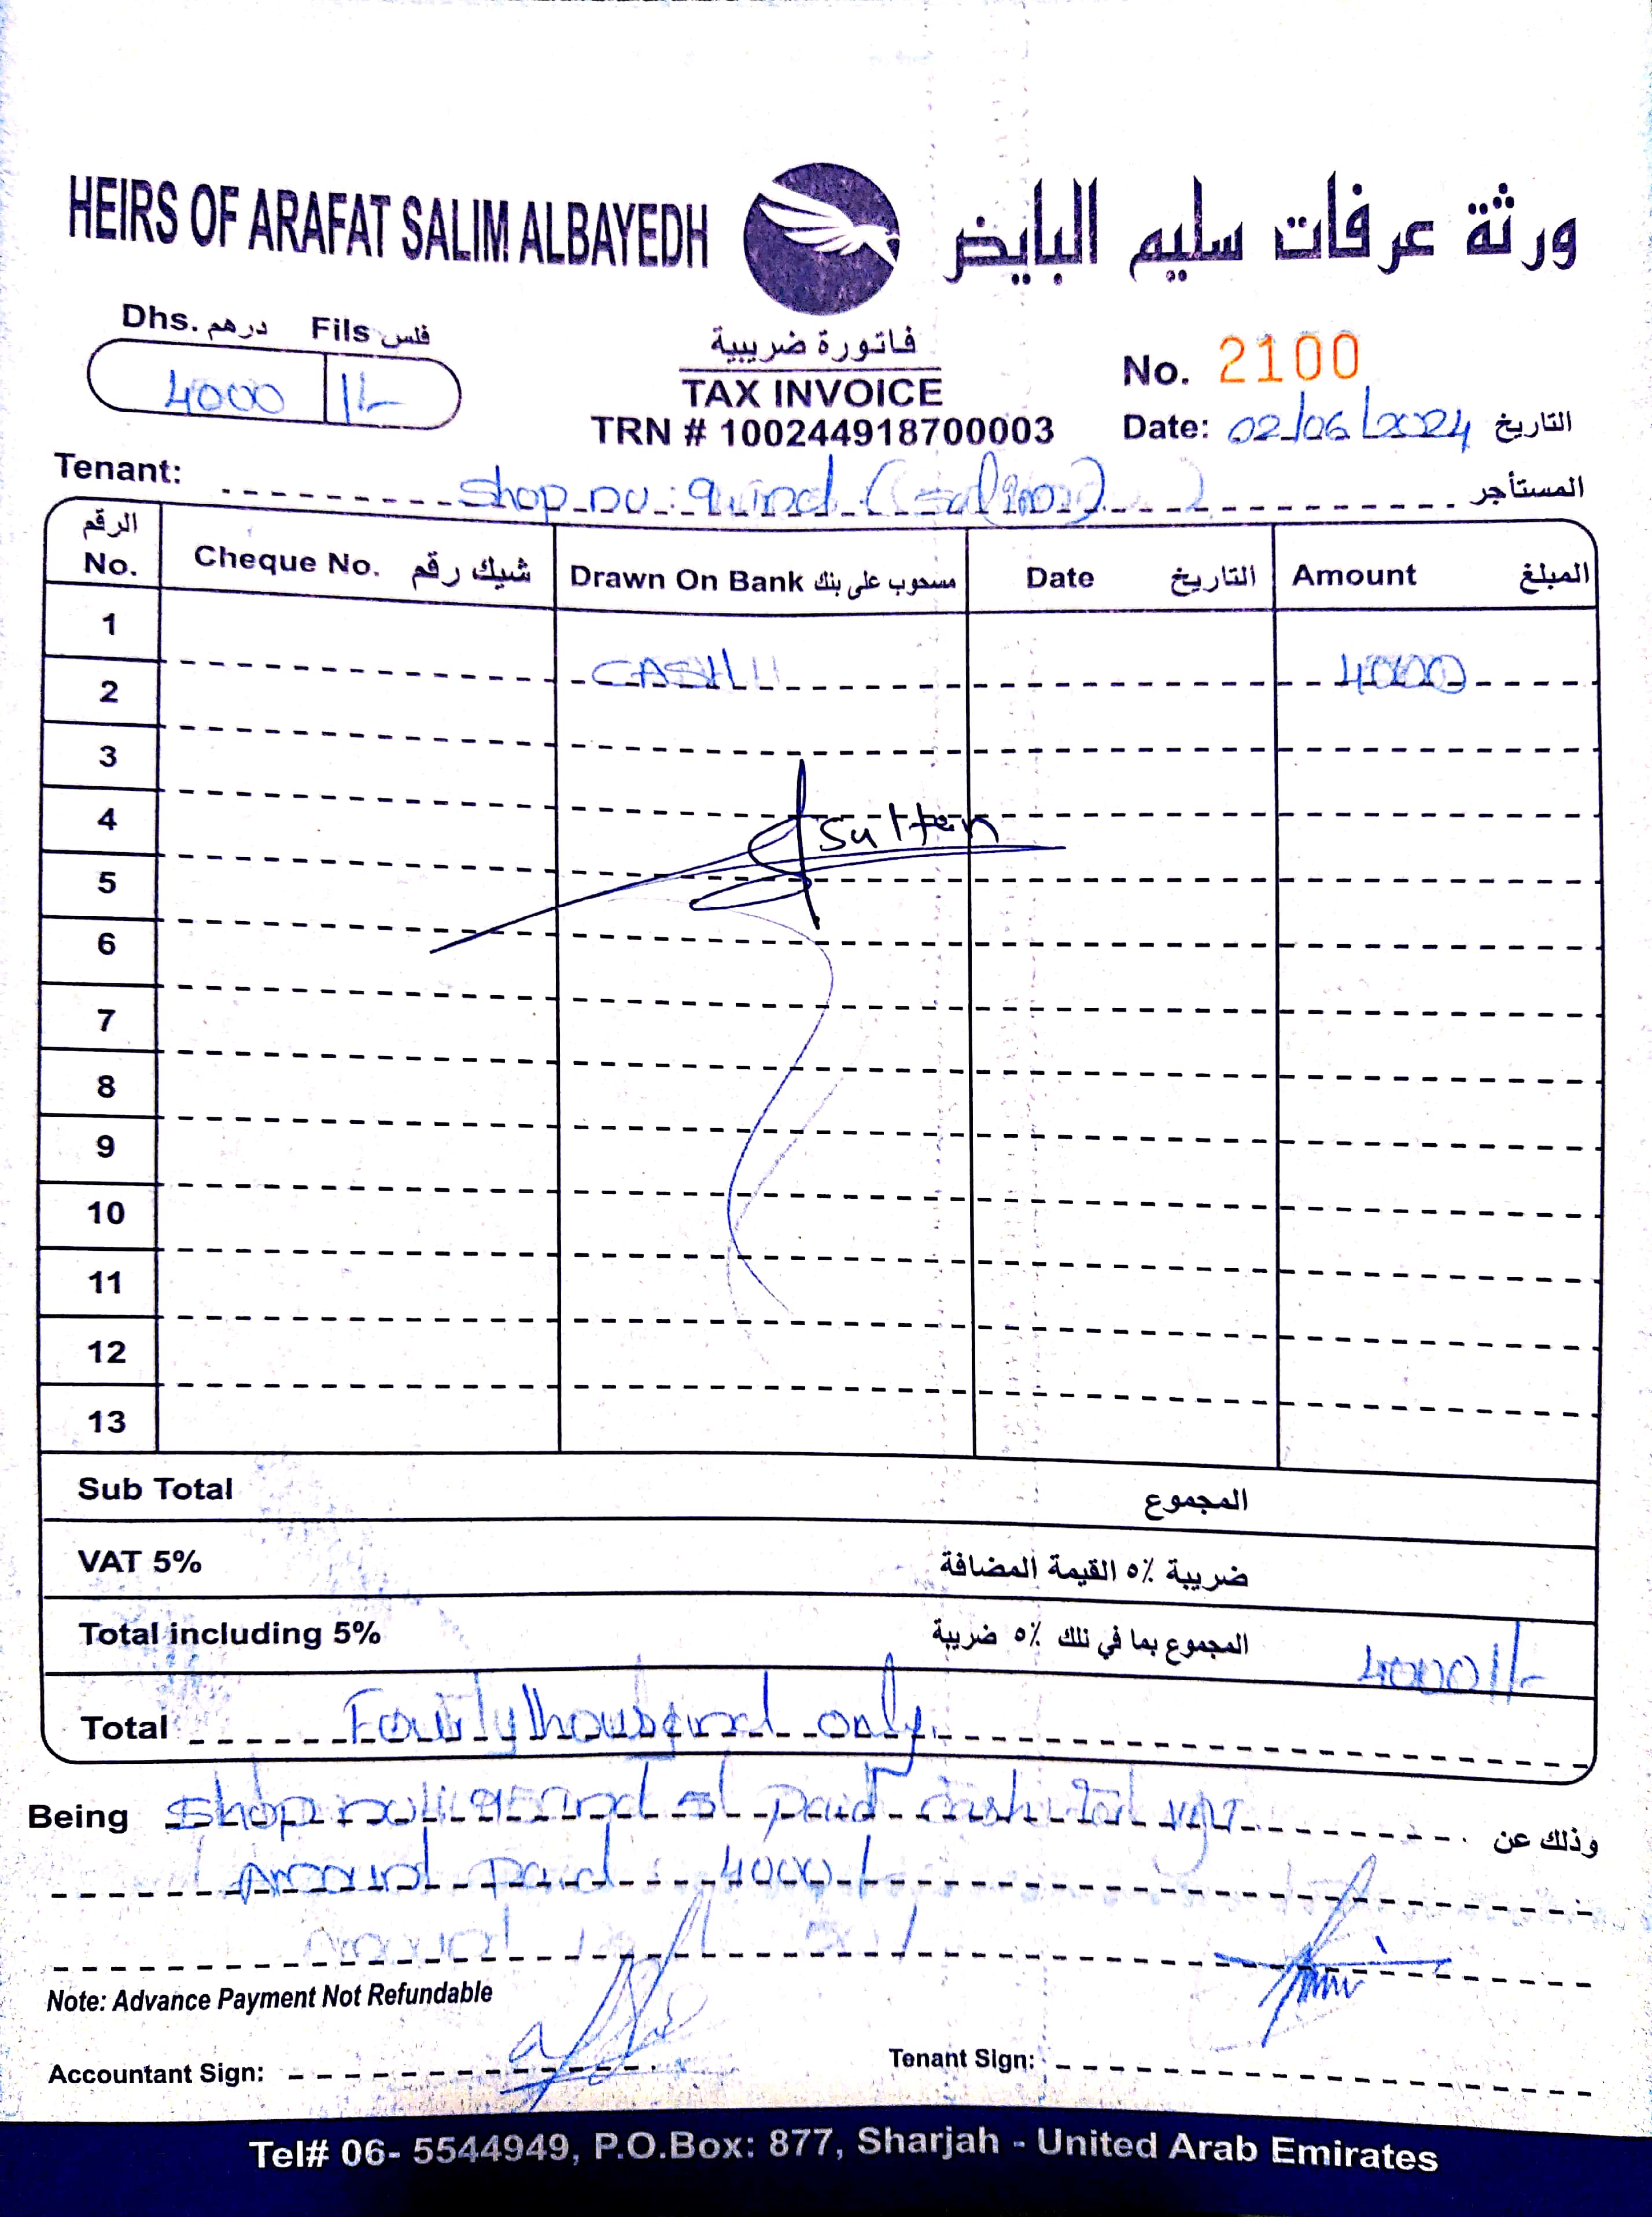 HEIRS OF ARAFAT SALIM ALBAYEDH
ورثة عرفات سليم البايض
Dhs. درهم Fils فلس
4000 /-
فاتورة ضريبية
TAX INVOICE
TRN # 100244918700003
No. 2100
Date: 02/06/2024 التاريخ
Tenant: Shop no: 9 المستأجر
الرقم No. Cheque No. شيك رقم Drawn On Bank مسحوب على بنك Date التاريخ Amount المبلغ
1
2 CASH 4000
3
4 Sultan
5
6
7
8
9
10
11
12
13
Sub Total المجموع
VAT 5% ضريبة ٥٪ القيمة المضافة
Total including 5% المجموع بما في ذلك ٥٪ ضريبة 4000/-
Total thousand only
Being Shop paid cash وذلك عن
Amount Paid : 4000/
Amount
Note: Advance Payment Not Refundable
Accountant Sign: Tenant Sign:
Tel# 06- 5544949, P.O.Box: 877, Sharjah - United Arab Emirates